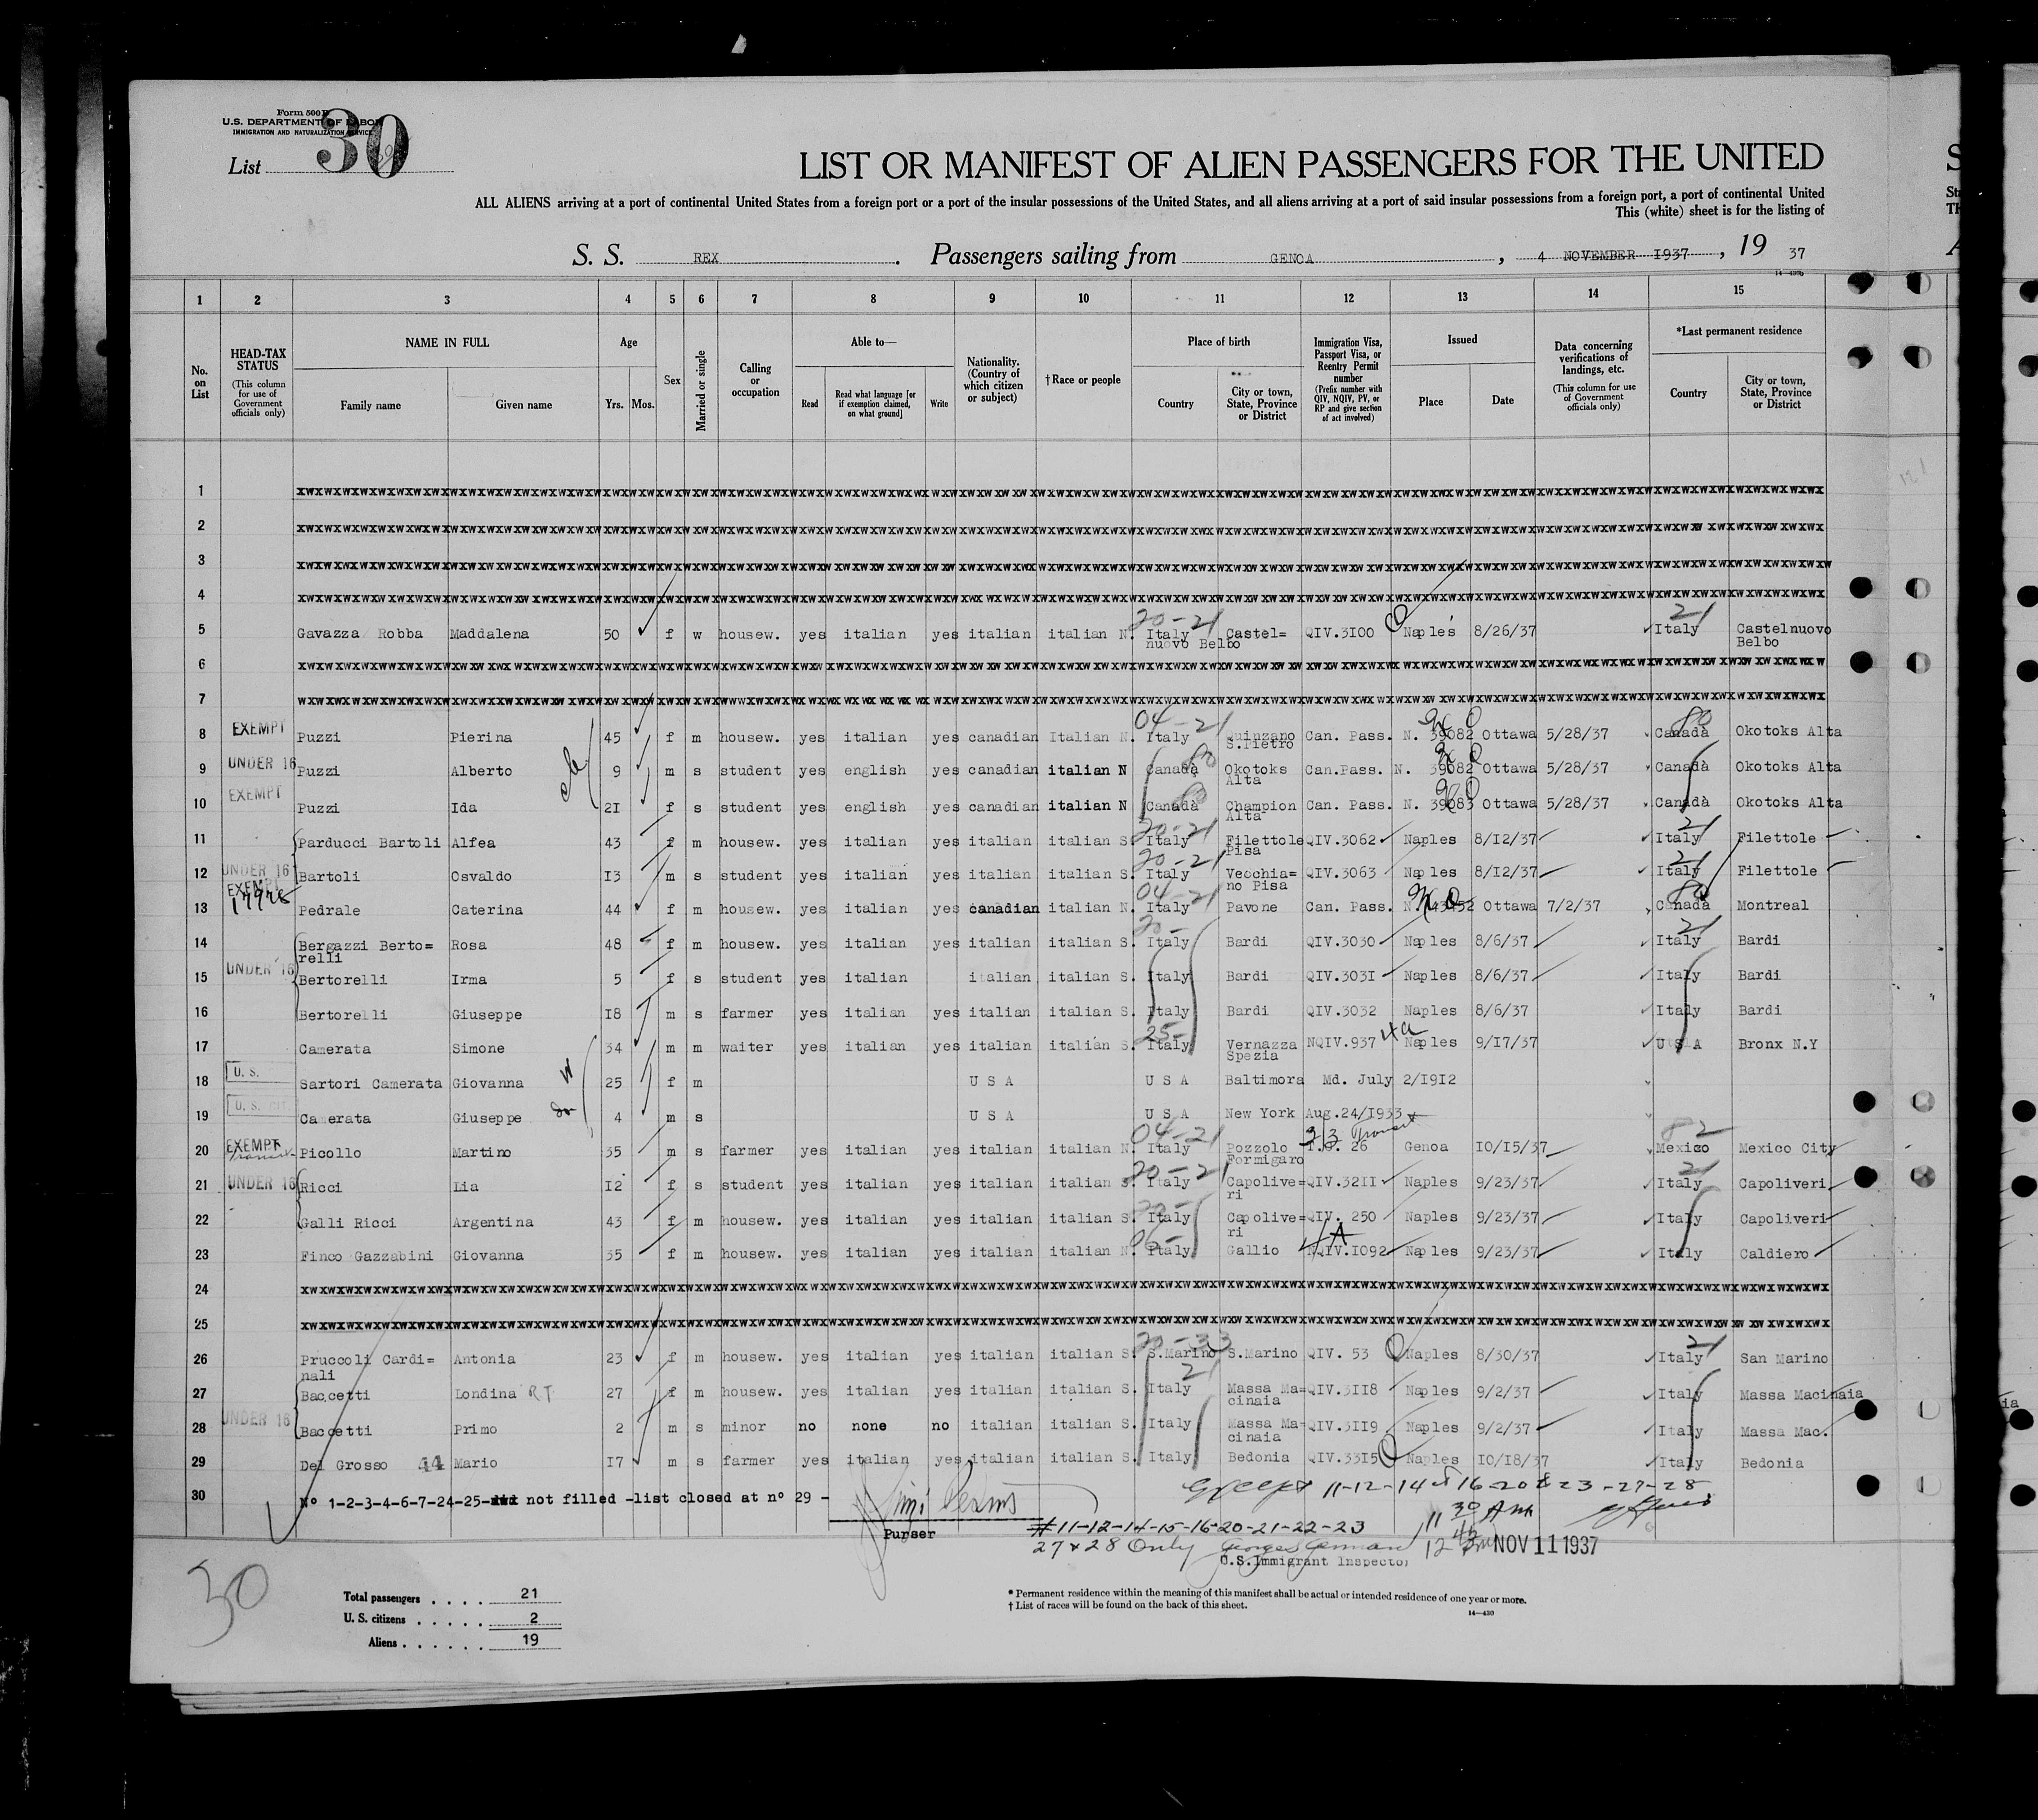 Form 500 B
U.S. DEPARTMENT OF LABOR
IMMIGRATION AND NATURALIZATION SERVICE
List 30
LIST OR MANIFEST OF ALIEN PASSENGERS FOR THE UNITED
ALL ALIENS arriving at a port of continental United States from a foreign port or a port of the insular possessions of the United States, and all aliens arriving at a port of said insular possessions from a foreign port, a port of continental United
This (white) sheet is for the listing of
S. S. REX. Passengers sailing from GENOA, 4 NOVEMBER 1937, 19 37
1 2 3 4 5 6 7 8 9 10 11 12 13 14 15
No. on List
HEAD-TAX STATUS (This column for use of Government officials only)
NAME IN FULL Family name Given name
Age Yrs. Mos.
Sex
Married or single
Calling or occupation
Able to— Read Read what language [or if exemption claimed, on what ground] Write
Nationality. (Country of which citizen or subject)
†Race or people
Place of birth Country City or town, State, Province or District
Immigration Visa, Passport Visa, or Reentry Permit number (Prefix number with QIV, NQIV, PV, or RP and give section of act involved)
Issued Place Date
Data concerning verifications of landings, etc. (This column for use of Government officials only)
*Last permanent residence Country City or town, State, Province or District
1
2
3
4
5 Gavazza Robba Maddalena 50 f w housew. yes italian yes italian italian N. 20-21 Italy Castel= nuovo Belbo QIV.3I00 Naples 8/26/37 21 Italy Castelnuovo Belbo
6
7
8 EXEMPT Puzzi Pierina 45 f m housew. yes italian yes canadian Italian N. 04-21 Italy Quinzano S.Pietro Can. Pass. N. 39082 Ottawa 5/28/37 80 Canadà Okotoks Alta
9 UNDER 16 Puzzi Alberto 9 m s student yes english yes canadian italian N 80 Canadà Okotoks Alta Can.Pass. N. 39082 Ottawa 5/28/37 Canadà Okotoks Alta
10 EXEMPT Puzzi Ida 2I f s student yes english yes canadian italian N 80 Canadà Champion Alta Can. Pass. N. 39083 Ottawa 5/28/37 Canadà Okotoks Alta
11 Parducci Bartoli Alfea 43 f m housew. yes italian yes italian italian S. 20-21 Italy Filettole Pisa QIV.3062 Naples 8/I2/37 21 Italy Filettole
12 UNDER 16 Bartoli Osvaldo I3 m s student yes italian yes italian italian S. 20-21 Italy Vecchia= no Pisa QIV.3063 Naples 8/I2/37 21 Italy Filettole
13 EXEMPT Pedrale Caterina 44 f m housew. yes italian yes canadian italian N. 04-21 Italy Pavone Can. Pass. N. Ottawa 7/2/37 80 Canadà Montreal
14 Bergazzi Berto= relli Rosa 48 f m housew. yes italian yes italian italian S. 20- Italy Bardi QIV.3030 Naples 8/6/37 21 Italy Bardi
15 UNDER 16 Bertorelli Irma 5 f s student yes italian italian italian S. Italy Bardi QIV.303I Naples 8/6/37 Italy Bardi
16 Bertorelli Giuseppe I8 m s farmer yes italian yes italian italian S. Italy Bardi QIV.3032 Naples 8/6/37 Italy Bardi
17 Camerata Simone 34 m m waiter yes italian yes italian italian S. 25- Italy Vernazza Spezia NQIV.937 4a Naples 9/I7/37 U S A Bronx N.Y
18 U. S. Sartori Camerata Giovanna 25 f m U S A U S A Baltimora Md. July 2/I9I2
19 U. S. CIT. Camerata Giuseppe 4 m s U S A U S A New York Aug.24/I933
20 EXEMPT Transit Picollo Martino 35 m s farmer yes italian yes italian italian N. 04-21 Italy Pozzolo Formigaro 3/3 Transit 26 Genoa I0/I5/37 82 Mexico Mexico City
21 UNDER 16 Ricci Lia I2 f s student yes italian yes italian italian S. 20-21 Italy Capolive= ri QIV.32II Naples 9/23/37 21 Italy Capoliveri
22 Galli Ricci Argentina 43 f m housew. yes italian yes italian italian S. Italy Capolive= ri QIV. 250 Naples 9/23/37 Italy Capoliveri
23 Finco Gazzabini Giovanna 35 f m housew. yes italian yes italian italian N. 06- Italy Gallio 4A NQIV.I092 Naples 9/23/37 Italy Caldiero
24
25
26 Pruccoli Cardi= nali Antonia 23 f m housew. yes italian yes italian italian S. 20-33 S.Marino S.Marino QIV. 53 Naples 8/30/37 21 Italy San Marino
27 Baccetti Londina R.T 27 f m housew. yes italian yes italian italian S. 21 Italy Massa Ma= cinaia QIV.3II8 Naples 9/2/37 Italy Massa Macinaia
28 UNDER 16 Baccetti Primo 2 m s minor no none no italian italian S. Italy Massa Ma= cinaia QIV.3II9 Naples 9/2/37 Italy Massa Mac.
29 Del Grosso 44 Mario I7 m s farmer yes italian yes italian italian S. Italy Bedonia QIV.33I5 Naples I0/I8/37 Italy Bedonia
30 N° 1-2-3-4-6-7-24-25- not filled -list closed at n° 29 -
Except 11-12-14 16-20 23-27-28
Purser
#11-12-14-15-16-20-21-22-23
27 & 28 Only
11 30 AM
12 45 PM NOV 11 1937
U.S. Immigrant Inspector
30
Total passengers 21
U. S. citizens 2
Aliens 19
* Permanent residence within the meaning of this manifest shall be actual or intended residence of one year or more.
† List of races will be found on the back of this sheet.
14—430